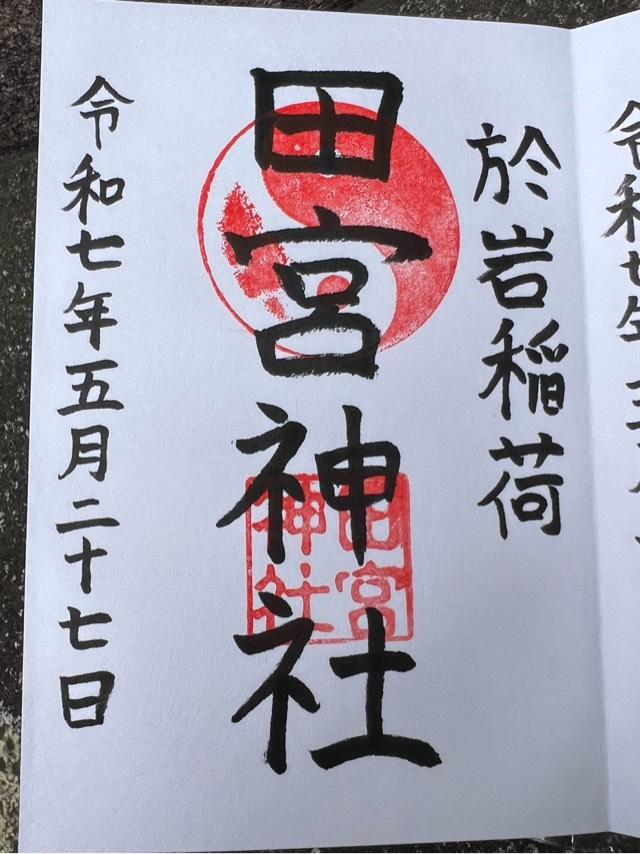 於岩稲荷
田宮神社
田宮神社
令和七年五月二十七日